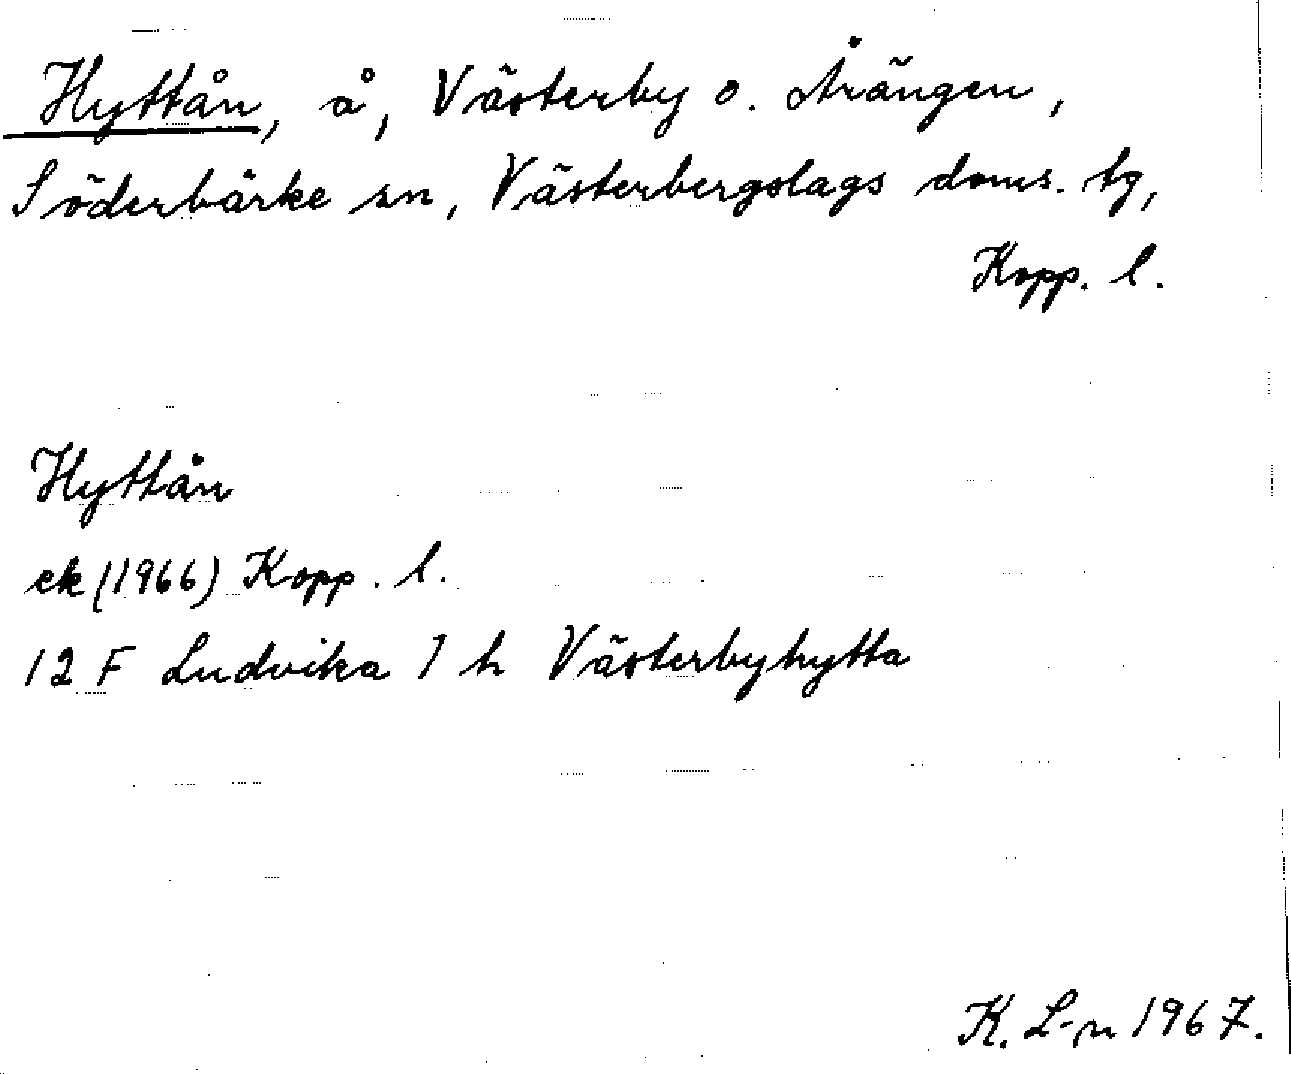 Hyttån, å, Västerby o. Årängen,
Söderbärke sn, Västerbergslags doms. tg,
Kopp. l.
Hyttån
ek (1966) Kopp. l.
12 F Ludvika 7 h Västerbyhytta
K. L-n 1967.